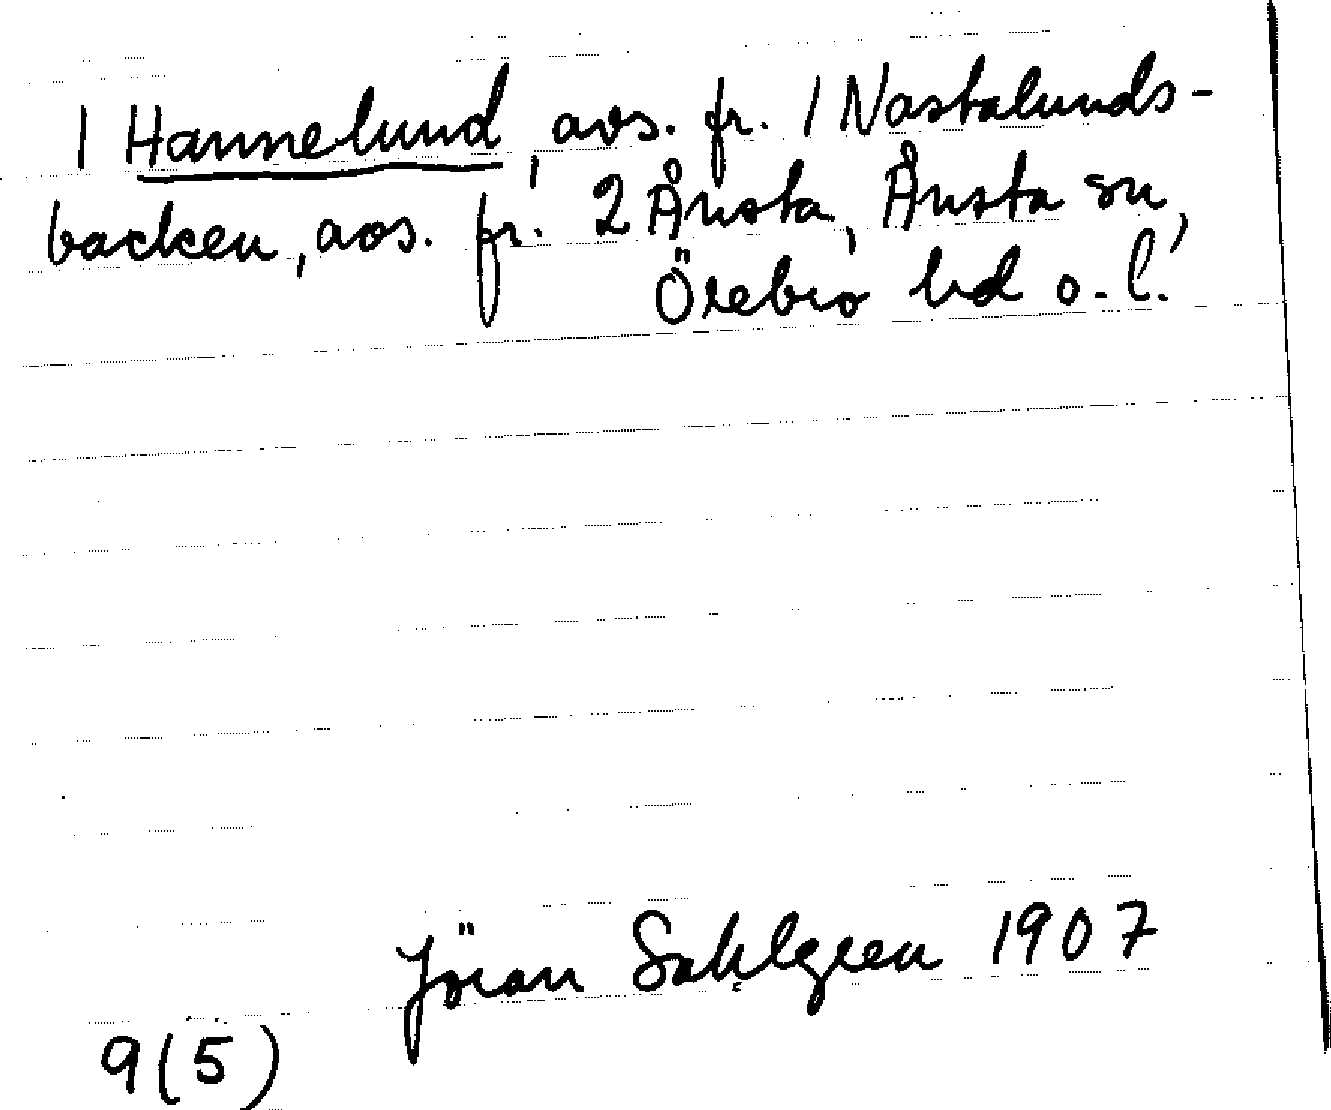 1 Hannelund, avs. fr. 1 Nastalunds-
backen, avs. fr. 2 Ånsta, Ånsta sn,
Örebro hd o. l.
Jöran Sahlgren 1907
9(5)